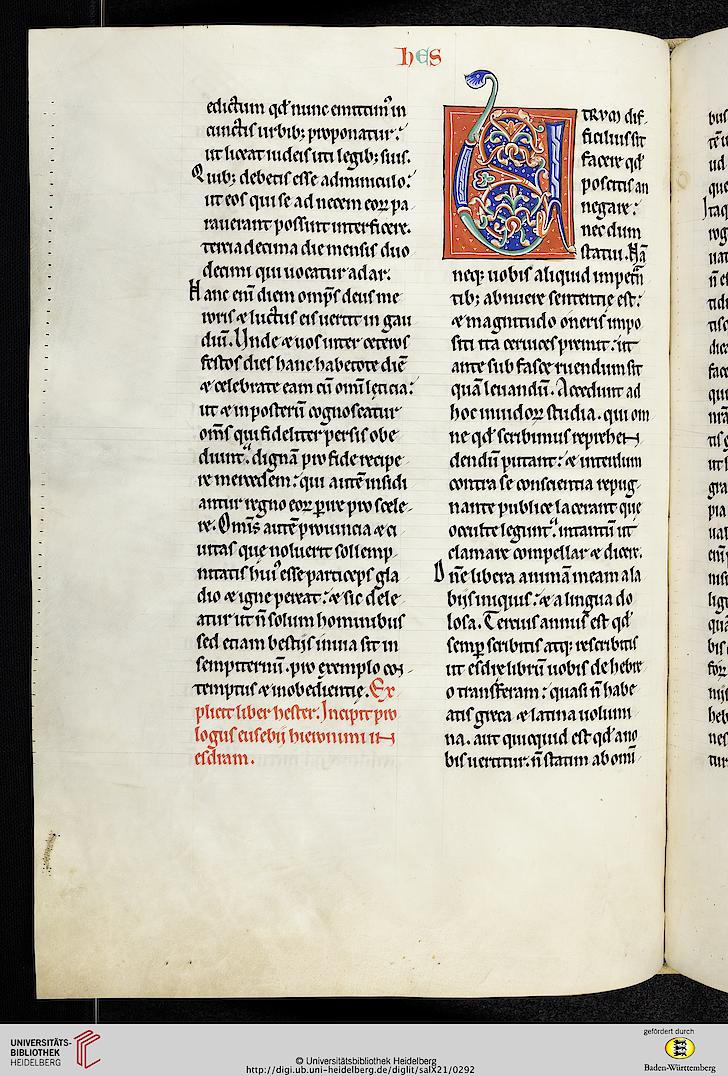 hes
edictum qđ nunc emittim᷒ in
cunctis urbib; proponatur:
ut liceat iudeis uti legib; suis.
Quib; debetis esse adminiculo:
ut eos qui se ad necem eoꝝ pa
rauerant possint interficere.
tercia decima die mensis duo
decimi qui uocatur adar.
Hanc eni diem omps deus me
roris & luctus eis uertit in gau
diū. Unde & uos inter ceteros
festos dies hanc habetote diē
& celebrate eam cū omi leticia:
ut & in posterū cognoscatur
oms qui fideliter persis obe
diunt. dignā pro fide recipe
re mercedem: qui autē insidi
antur regno eoꝝ ꝑire pro scele
re. Omis autē prouincia & ci
uitas que noluerit sollemp
nitatis hui᷒ esse particeps gla
dio & igne pereat: & sic dele
atur ut n̄ solum hominibus
sed etiam bestijs inuia sit in
sempiternū. pro exemplo con
temptus & inobedientie. Ex
plicit liber hester. Incipit pro
logus eusebij hieronimi in
esdram.
UTRVM dif
ficilius sit
facere qđ
poscitis an
negare:
nec dum
statui. Nā
neq; uobis aliquid impetā
tib; abnuere sententie est:
& magnitudo oneris impo
siti ita ceruices premit: ut
ante sub fasce ruendum sit
quā leuandū. Accedunt ad
hoc inuidoꝝ studia. qui om
ne qđ scribimus reprehen
dendū putant: & interdum
contra se conscientia repug
nante publice lacerant que
occulte legunt. intantū ut
clamare compellar & dicere.
Dn̄e libera animā meam a la
bijs iniquis: & a lingua do
losa. Tercius annus est qđ
semꝑ scribitis atq; rescribitis
ut esdre librū uobis de hebre
o transferam: quasi n̄ habe
atis greca & latina uolumi
na. aut quicquid est qđ a no
bis uertitur. n̄ statim ab omi
UNIVERSITÄTS-
BIBLIOTHEK
HEIDELBERG
© Universitätsbibliothek Heidelberg
http://digi.ub.uni-heidelberg.de/diglit/salX21/0292
gefördert durch
Baden-Württemberg